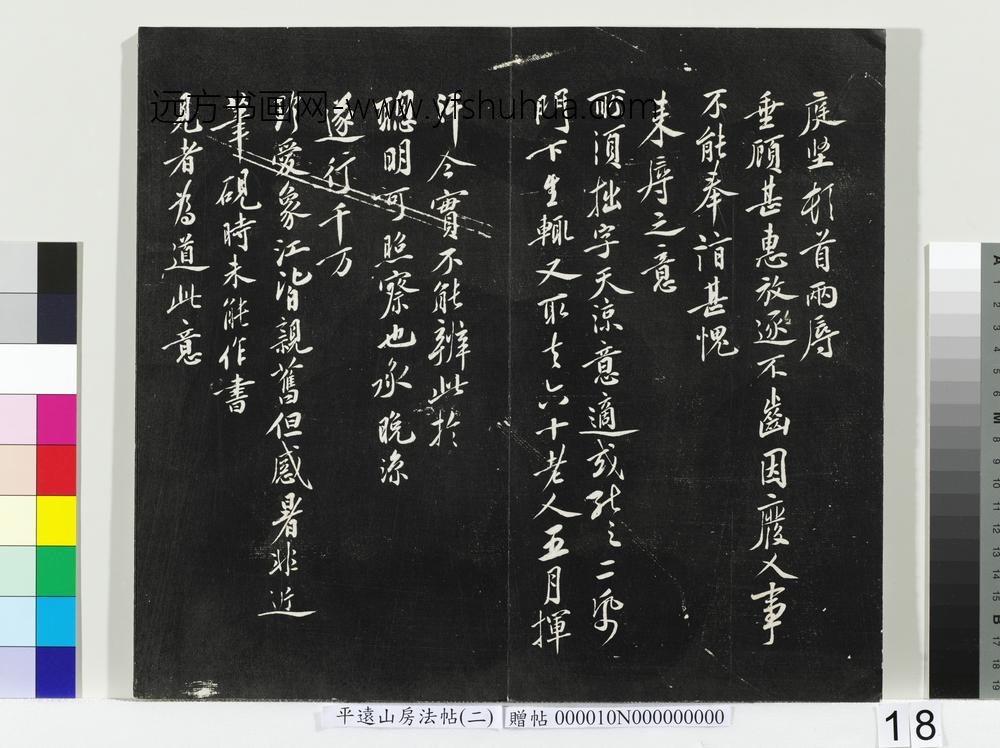 庭坚頓首兩辱
垂顧甚惠放逐不齒因廢人事
不能奉詣甚愧
來辱之意
所須拙字天涼意適或能之二
門下生輒又取去六十老人五月揮
汗今實不能辦此於
聰明可照察也承晚涼
遂行千万
珍愛象江皆親舊但盛暑非近
筆硯時未能作書
見者為道此意
远方书画网-www.yfshuhua.com
平遠山房法帖(二) 贈帖 000010N000000000
18